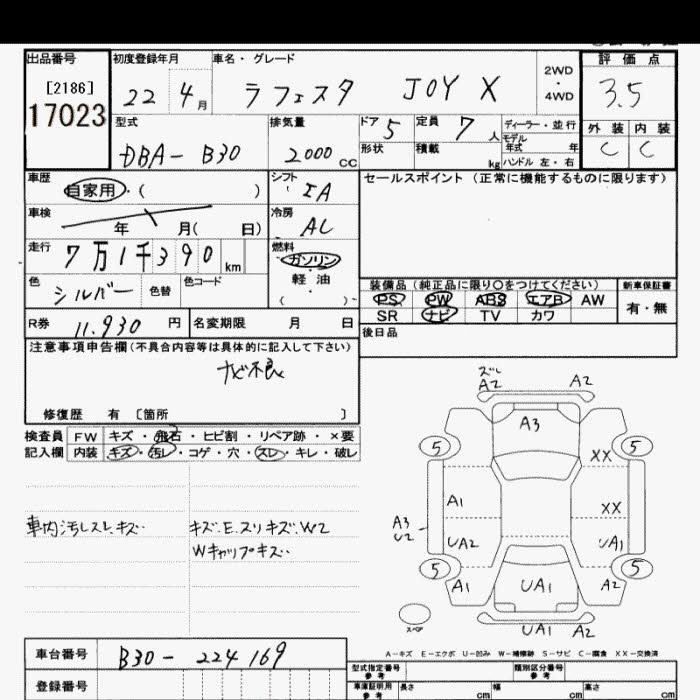 出品番号 初度登録年月 車名・グレード 評価点
[2186] 22 4月 ラフェスタ JOY X 2WD・4WD 3.5
17023
型式 排気量 ドア 5 定員 7人 ディーラー・並行 外装 内装
DBA- B30 2000cc 形状 積載 kg モデル年式 年 C C
ハンドル 左・右
車歴 シフト セールスポイント (正常に機能するものに限ります)
自家用・( ) IA
車検 年 月( 日) 冷房 AC
走行 7万1千390km 燃料
ガソリン・軽油
( )
色 シルバー 色替 色コード
装備品(純正品に限り○をつけてください) 新車保証書
PS PW ABS エアB AW 有・無
SR ナビ TV カワ
R券 11.930円 名変期限 月 日 後日品
注意事項申告欄(不具合内容等は具体的に記入して下さい)
ナビ不良
修復歴 有 〔箇所 〕
検査員 FW キズ・飛石・ヒビ割・リペア跡・×要
記入欄 内装 キズ・汚レ・コゲ・穴・スレ・キレ・破レ
車内汚レスレ.キズ キズ.E.スリキズ.W2
Wキャップキズ
ズレ
A2 A2
A3
5 5
XX
A1 XX
A3
U2
UA2 UA1
5 5
A1 UA1 A2
スペア
UA1 A2
A-キズ E-エクボ U-凹み W-補修跡 S-サビ C-腐食 XX-交換済
車台番号 B30- 224169
型式指定番号 参考 類別区分番号 参考
登録番号
車庫証明用 参考 長さ cm 幅 cm 高さ cm